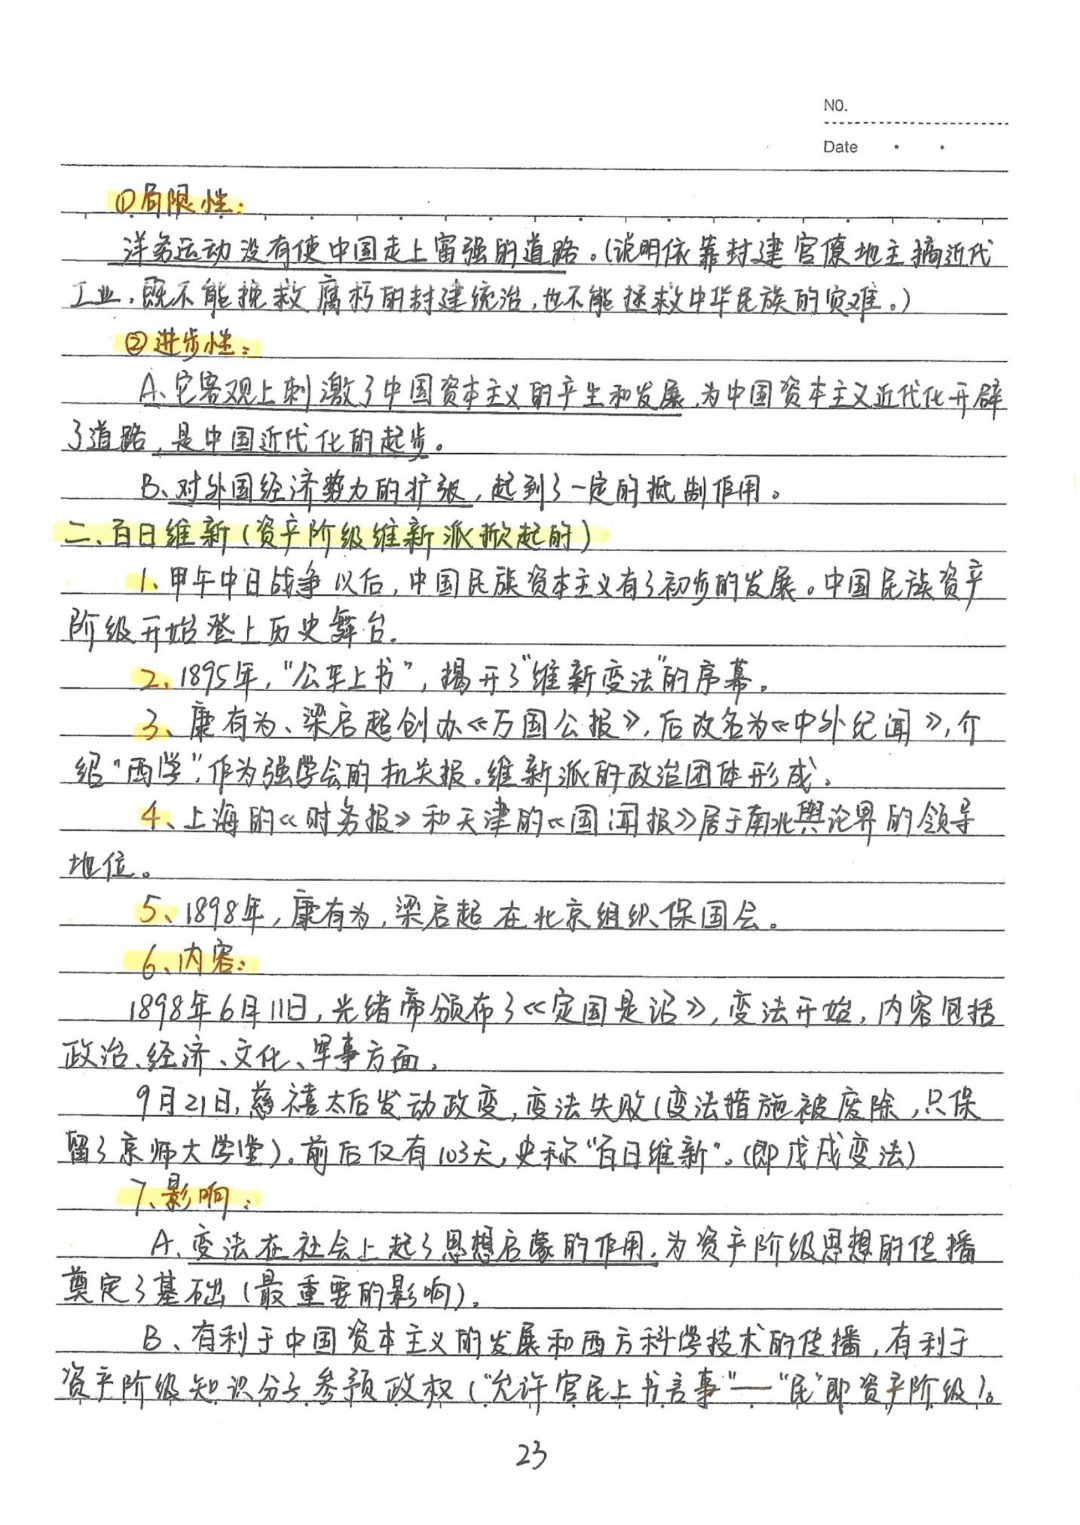 NO.
Date
①局限性:
洋务运动没有使中国走上富强的道路。(说明依靠封建官僚地主搞近代
工业,既不能挽救腐朽的封建统治,也不能拯救中华民族的灾难。)
②进步性:
A、它客观上刺激了中国资本主义的产生和发展,为中国资本主义近代化开辟
了道路,是中国近代化的起步。
B、对外国经济势力的扩张,起到了一定的抵制作用。
二、百日维新(资产阶级维新派掀起的)
1、甲午中日战争以后,中国民族资本主义有了初步的发展。中国民族资产
阶级开始登上历史舞台。
2、1895年,“公车上书”,揭开了“维新变法”的序幕。
3、康有为、梁启超创办《万国公报》,后改名为《中外纪闻》,介
绍“西学”,作为强学会的机关报。维新派的政治团体形成。
4、上海的《时务报》和天津的《国闻报》居于南北舆论界的领导
地位。
5、1898年,康有为,梁启超在北京组织保国会。
6、内容:
1898年6月11日,光绪帝颁布了《定国是诏》,变法开始,内容包括
政治、经济、文化、军事方面。
9月21日,慈禧太后发动政变,变法失败(变法措施被废除,只保
留了京师大学堂)。前后仅有103天,史称“百日维新”。(即戊戌变法)
7、影响:
A、变法在社会上起了思想启蒙的作用,为资产阶级思想的传播
奠定了基础(最重要的影响)。
B、有利于中国资本主义的发展和西方科学技术的传播,有利于
资产阶级知识分子参预政权(“允许官民上书言事”——“民”即资产阶级)。
23